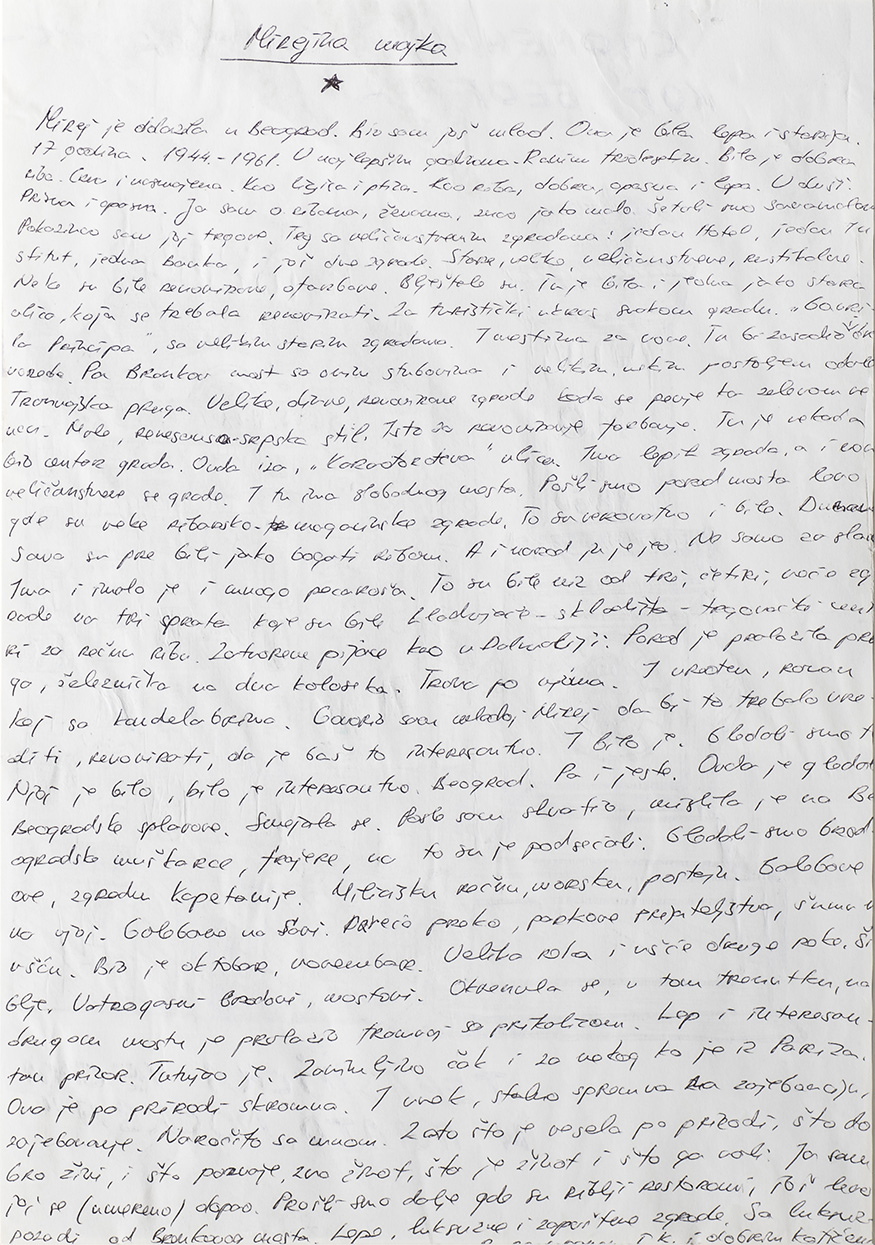 Mirejina majka
Mirej je dolazila u Beograd. Bio sam još mlad. Ona je bila lepa i starija.
17 godina. 1944.-1961. U najlepšim godinama. Ranim tridesetim. Bila je dobra
riba. Crna i nasmejana. Kao lignja i ptica. Kao riba, dobra, opasna i lepa. U duši.
Prisna i opasna. Ja sam o ribama, ženama, znao jako malo. Šetali smo savamalom
Pokazivao sam joj trgove. Trg sa veličanstvenim zgradama: jedan Hotel, jedan In
stitut, jedna Banka, i još dve zgrade. Stare, velike, veličanstvene,
Neke su bile renovirane, ofarbane. Blještale su. Tu je bila i jedna jako stara
ulica, koja se trebala renovirati. Za turistički ukras svakom gradu. „Gavri-
la Principa“, sa velikim starim zgradama. I mestima za nove. Tu bi zasadio
Pa Brankov most sa onim stubovima i velikim, niskim postoljem odozdo
Tramvajska pruga. Velike, divne, renovirane zgrade kada se penje ka zelenom ve
ncu. Male, renesansa-srpska stil. Isto za renoviranje farbanje. Tu je nekada
bio centar grada. Onda iza, „Karađorđeva“ ulica. Ima lepih zgrada, a i nove
veličanstvene se grade. I tu ima slobodnog mesta. Pošli smo pored mosta levo
gde su neke ribarsko-magacinske zgrade. To su verovatno i bile. Dunav
Sava su pre bili jako bogati ribom. A i narod ju je jeo. Ne samo za slavu
Ima i imalo je i mnogo pecaroša. To su bile niz od tri, četiri, veće zg
rade na tri sprata koje su bile hladnjače - skladišta - trgovački cent
ri za rečnu ribu. Zatvorene pijace kao u Dalmaciji. Pored je prolazila pru
ga, železnička na dva koloseka. Trava po njima. I uređen, ravan
kej sa kandelabrima. Govorio sam mladoj Mirej da bi to trebalo ure-
diti, renovirati, da je baš to interesantno. I bilo je. Gledali smo t
Njoj je bilo, bilo je interesantno. Beograd. Pa i jeste. Onda je gledala
Beogradske splavove. Smejala se. Posle sam shvatio, mislila je na Be
ogradske muškarce, frajere, na to su je podsećali. Gledali smo brod
ove, zgradu Kapetanije. Milicijsku rečnu, morsku, postaju. Galebove
na njoj. Galebove na Savi. Daleko preko, parkove prijateljstva, šuma u
ušću. Bio je oktobar, novembar. Velika reka i ušće druge reke. Ši
blje. Vatrogasni brodovi, mostovi. Okrenula se, u tom trenutku, na
drugom mostu je prolazio tramvaj sa prikolicom. Lep i interesan-
tan prizor. Tutnjao je. Zanimljivo čak i za nekog ko je iz Pariza.
Ona je po prirodi skromna. I uvek, stalno spremna na zajebanciju,
zajebavanje. Naročito sa mnom. Zato što je vesela po prirodi, što do
bro živi, i što poznaje, zna život, šta je život i što ga voli. Ja sam
joj se (umereno) dopao. Prošli smo dalje gde su riblji restorani, još levo
pozadi od Brankovog mosta. Lepe, luksuzne i zapuštene zgrade. Sa luksuz-